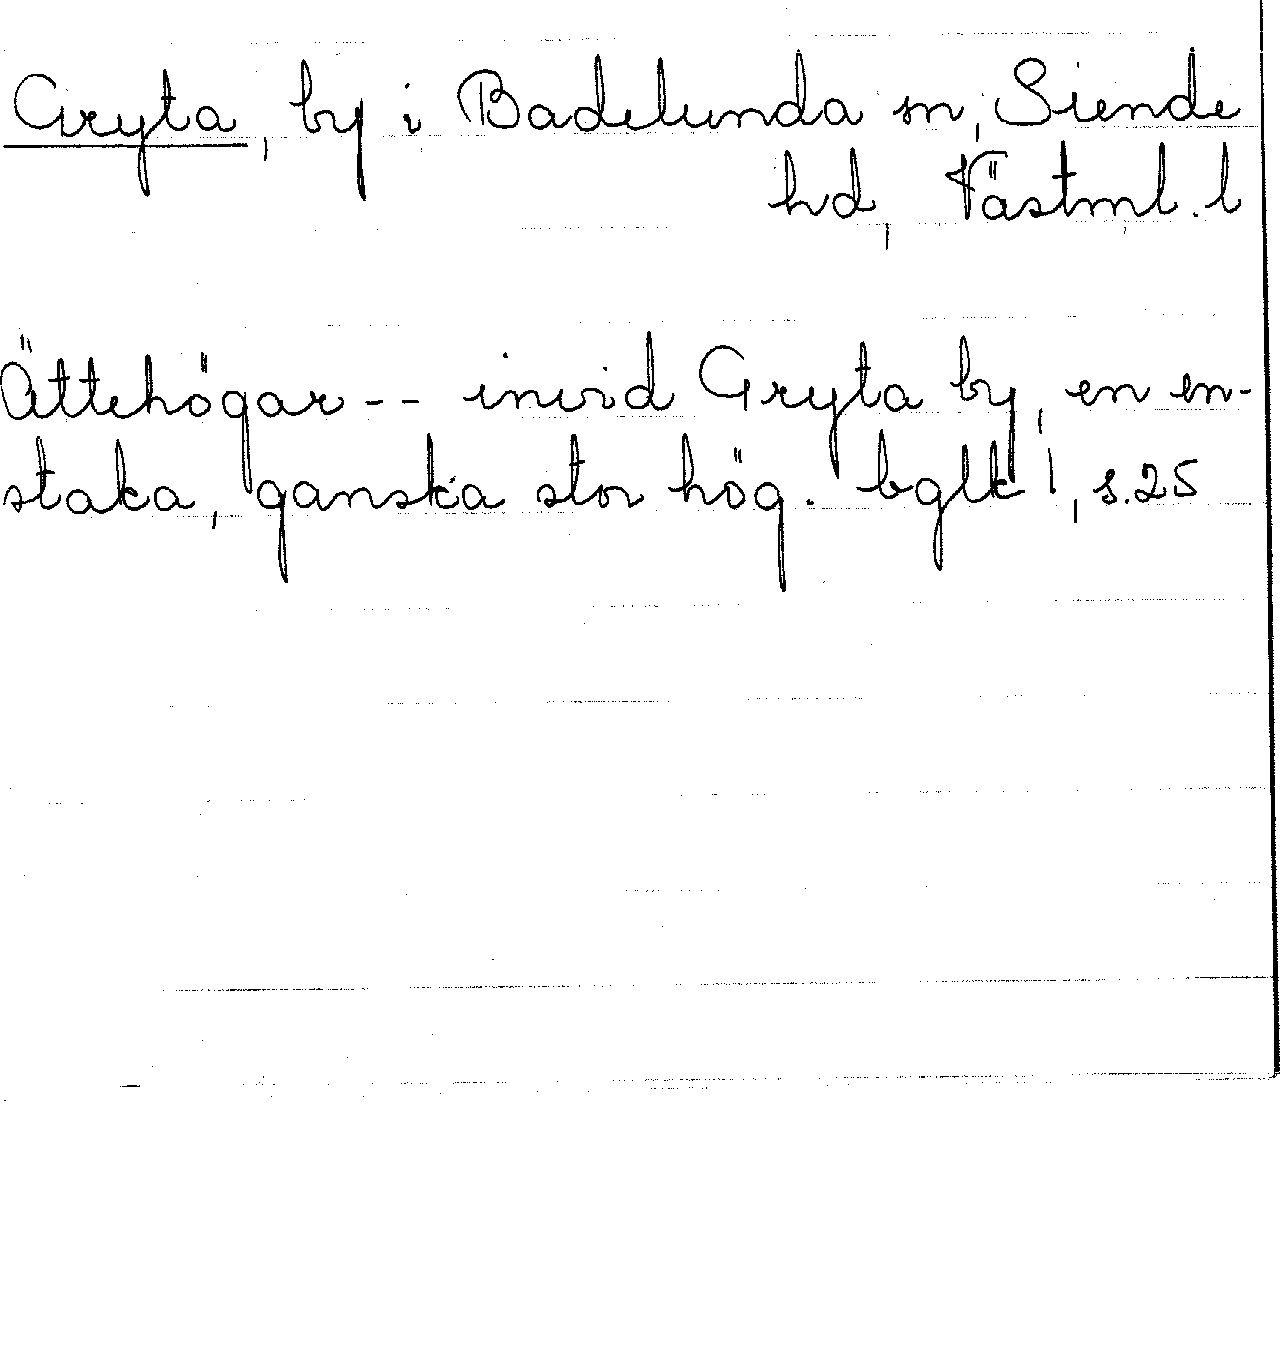 Gryta, by i Badelunda sn, Siende
hd, Västml. l
Ättehögar -- invid Gryta by, en en-
staka, ganska stor hög. bglk 1, s.25